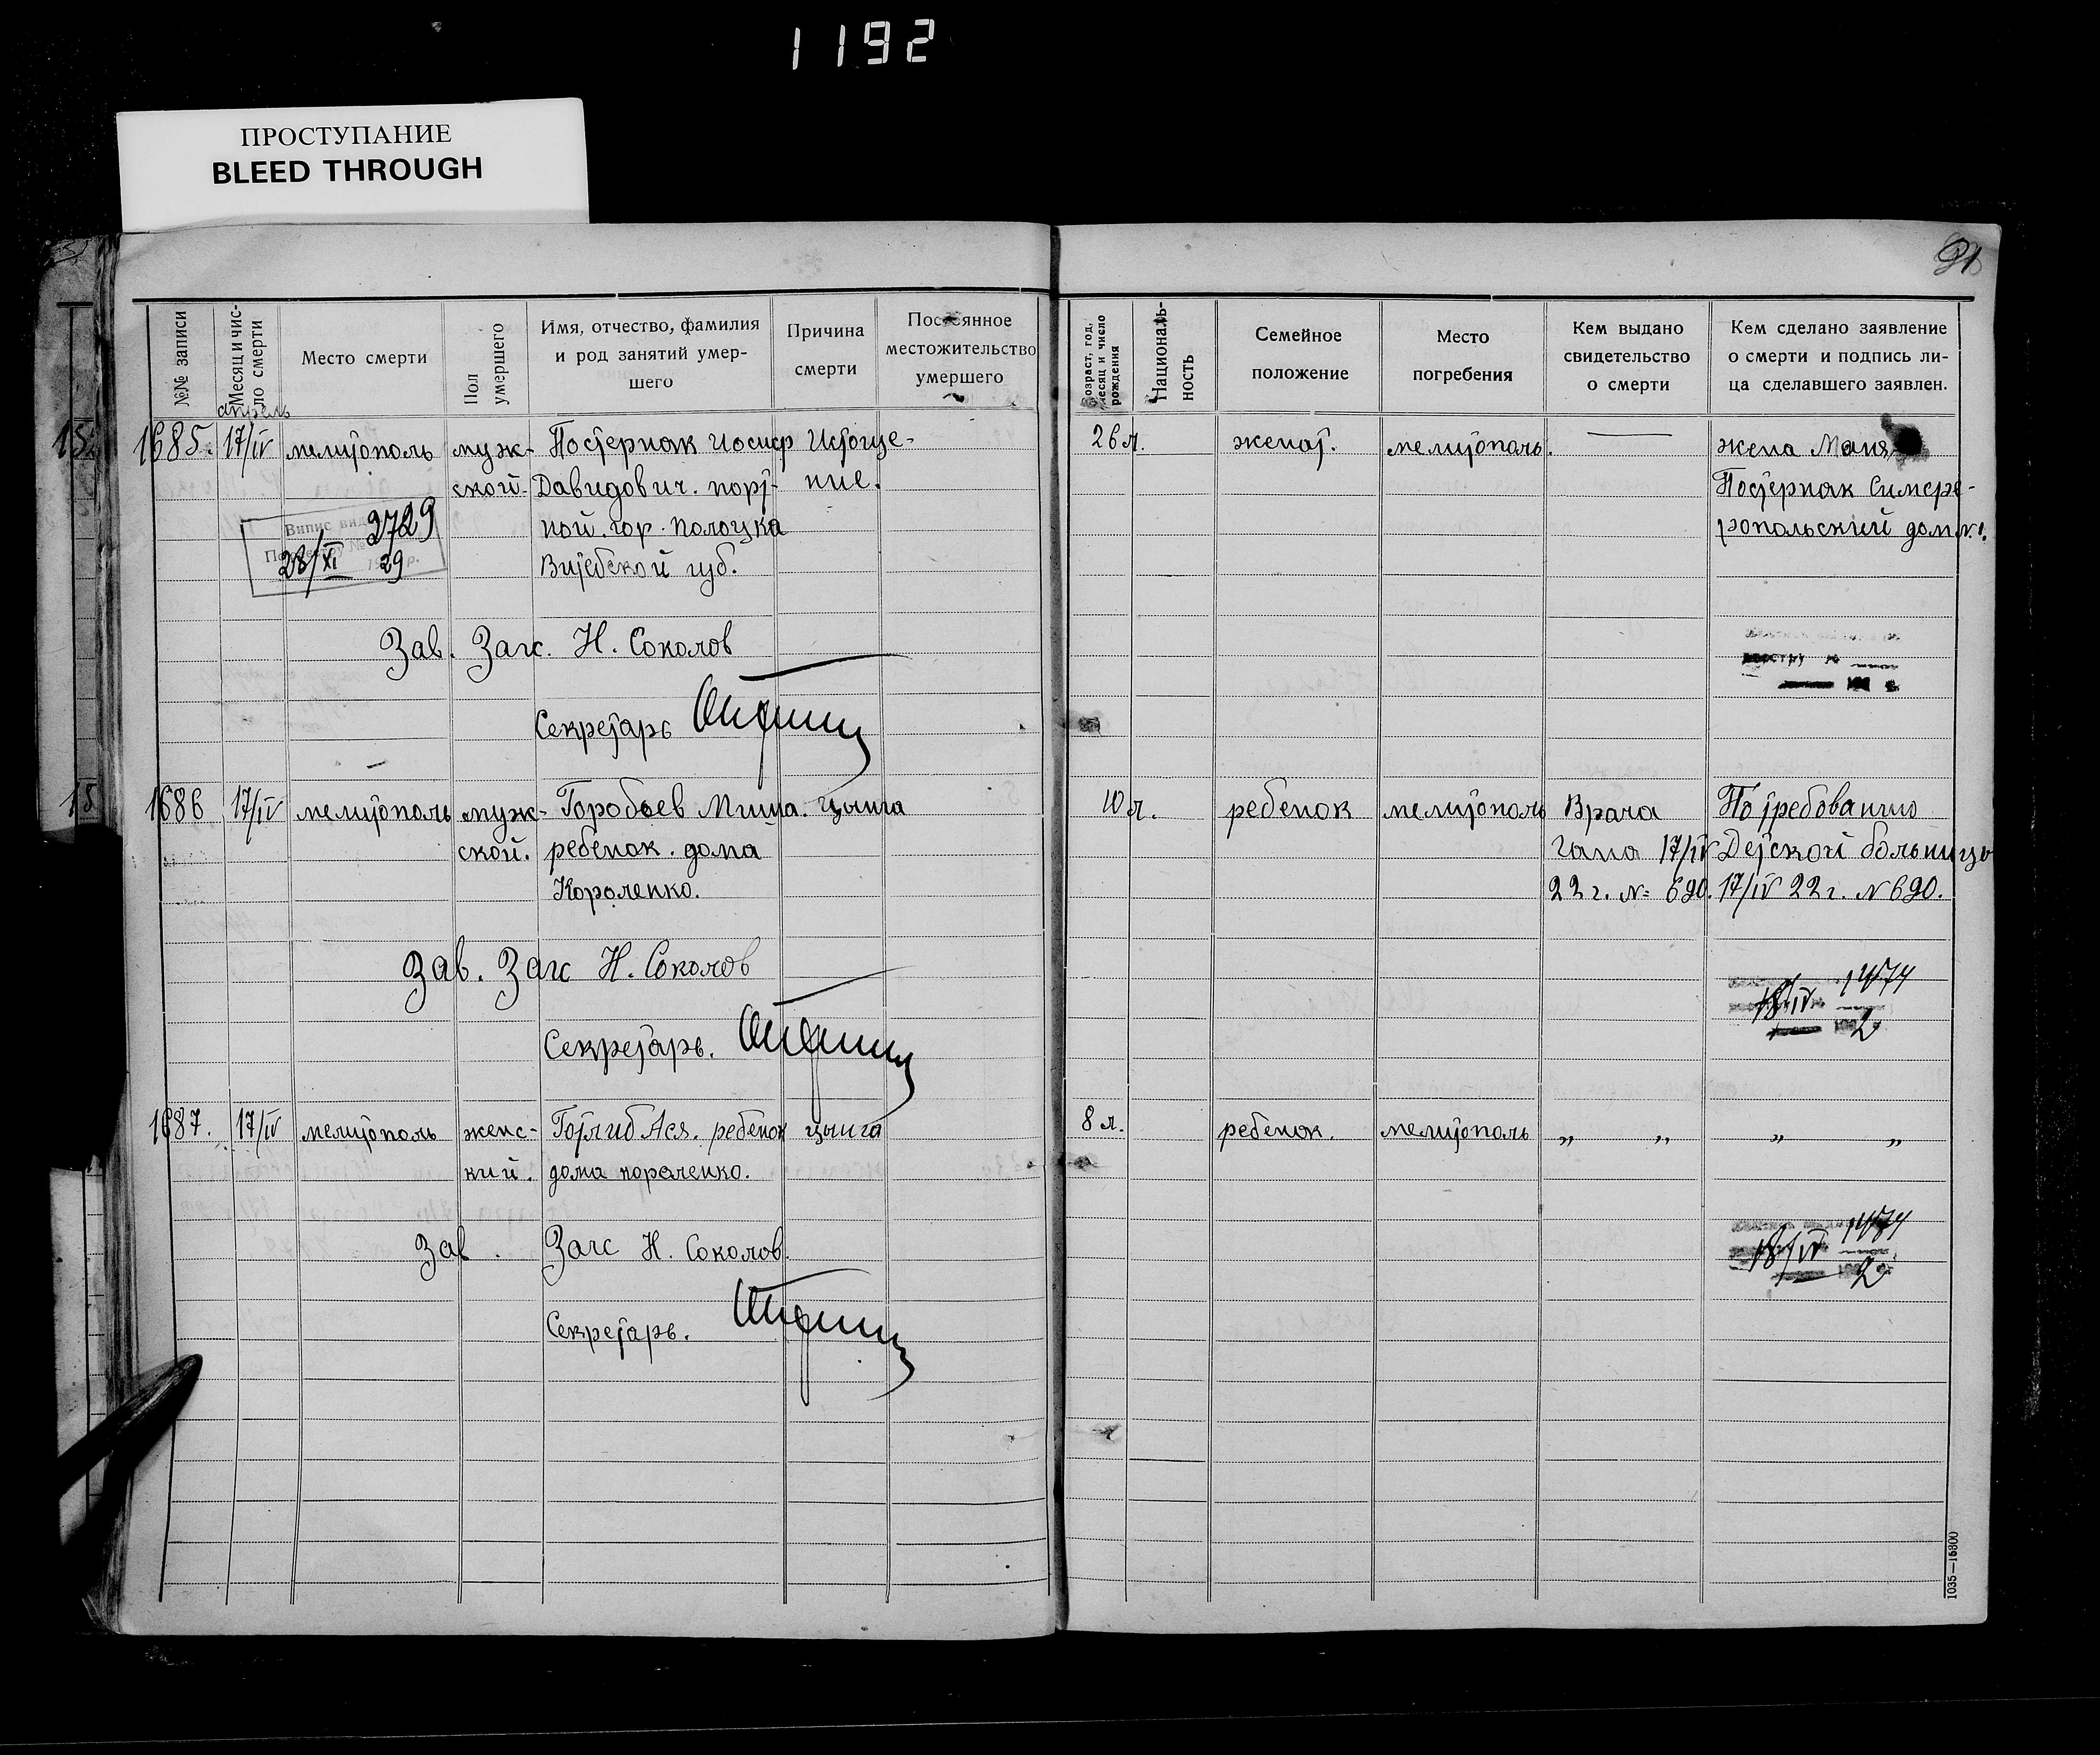 1192
ПРОСТУПАНИЕ
BLEED THROUGH
91
№№ записи
Месяц и чис-
ло смерти
Место смерти
Пол
умершего
Имя, отчество, фамилия
и род занятий умер-
шего
Причина
смерти
Постоянное
местожительство
умершего
Возраст, год,
месяц и число
рождения
Националь-
ность
Семейное
положение
Место
погребения
Кем выдано
свидетельство
о смерти
Кем сделано заявление
о смерти и подпись ли-
ца сделавшего заявлен.
апрель
1685. 17/IV мелитополь муж- Постернак Иосиф Истоще- 26 л. женат. мелитополь. — жена Маня
ской. Давидович. порт- ние. Постернак Симфе-
ной. гор. Полоцка ропольский дом №1.
Витебской губ.
Випис
2729
28/XI 29 р.
Зав. Загс. Н. Соколов
Секретарь
1686 17/IV мелитополь муж- Горобьев Миша. цынга 10 л. ребенок мелитополь Врача По требованию
ской. ребенок. дома Гана 17/IV Детской больницы
Короленко. 22 г. № 690. 17/IV 22 г. № 690.
Зав. Загс Н. Соколов
18/IV 1474
2
Секретарь.
1687. 17/IV мелитополь женс- Готлиб Ася. ребенок цынга 8 л. ребенок. мелитополь „ „ „ „
кий. дома короленко.
Зав. Загс Н. Соколов.
18/IV
2
Секретарь.
1035—15300